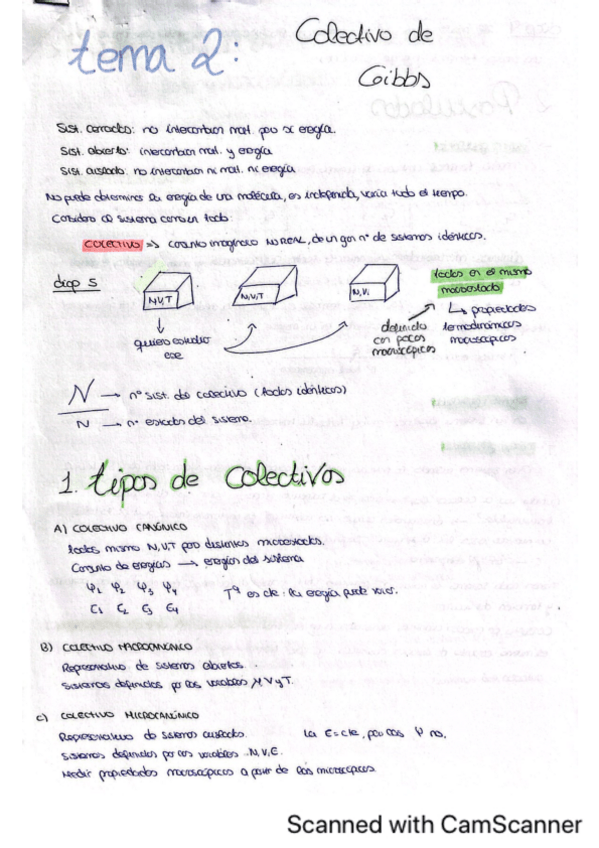 tema 2: Colectivo de
Gibbs
Sist. cerrados: no intercambian mat. pero sí energía.
Sist. abierto: intercambian mat. y energía
Sist. aislado: no intercambian ni mat. ni energía
No puedo determinar la energía de una molécula, es indefinida, varía todo el tiempo.
Considero el sistema como un todo.
COLECTIVO => conjunto imaginario NO REAL, de un gran nº de sistemas idénticos.
diap 5
N,V,T
N,V,T
N,V,
todos en el mismo
macroestado
propiedades
termodinámicas
macroscópicas
definido
con pocas
macroscópicas
quiero estudiar
ese
N → nº sist. del colectivo (todos idénticos)
N → nº estados del sistema.
1. tipos de colectivos
A) COLECTIVO CANÓNICO
todos mismo N,V,T pero distintos microestados.
Conjunto de energías → energías del sistema
Ψ1 Ψ2 Ψ3 Ψ4 Tª es cte; la energía puede variar.
E1 E2 E3 E4
B) COLECTIVO MACROCANÓNICO
Representativo de sistemas abiertos.
Sistemas definidos por las variables μ V y T.
C) COLECTIVO MICROCANÓNICO
Representativo de sistemas aislados. La E=cte, pero las Ψ no.
Sistemas definidos por las variables N,V,E.
Medir propiedades macroscópicas a partir de las microscópicas.
Scanned with CamScanner